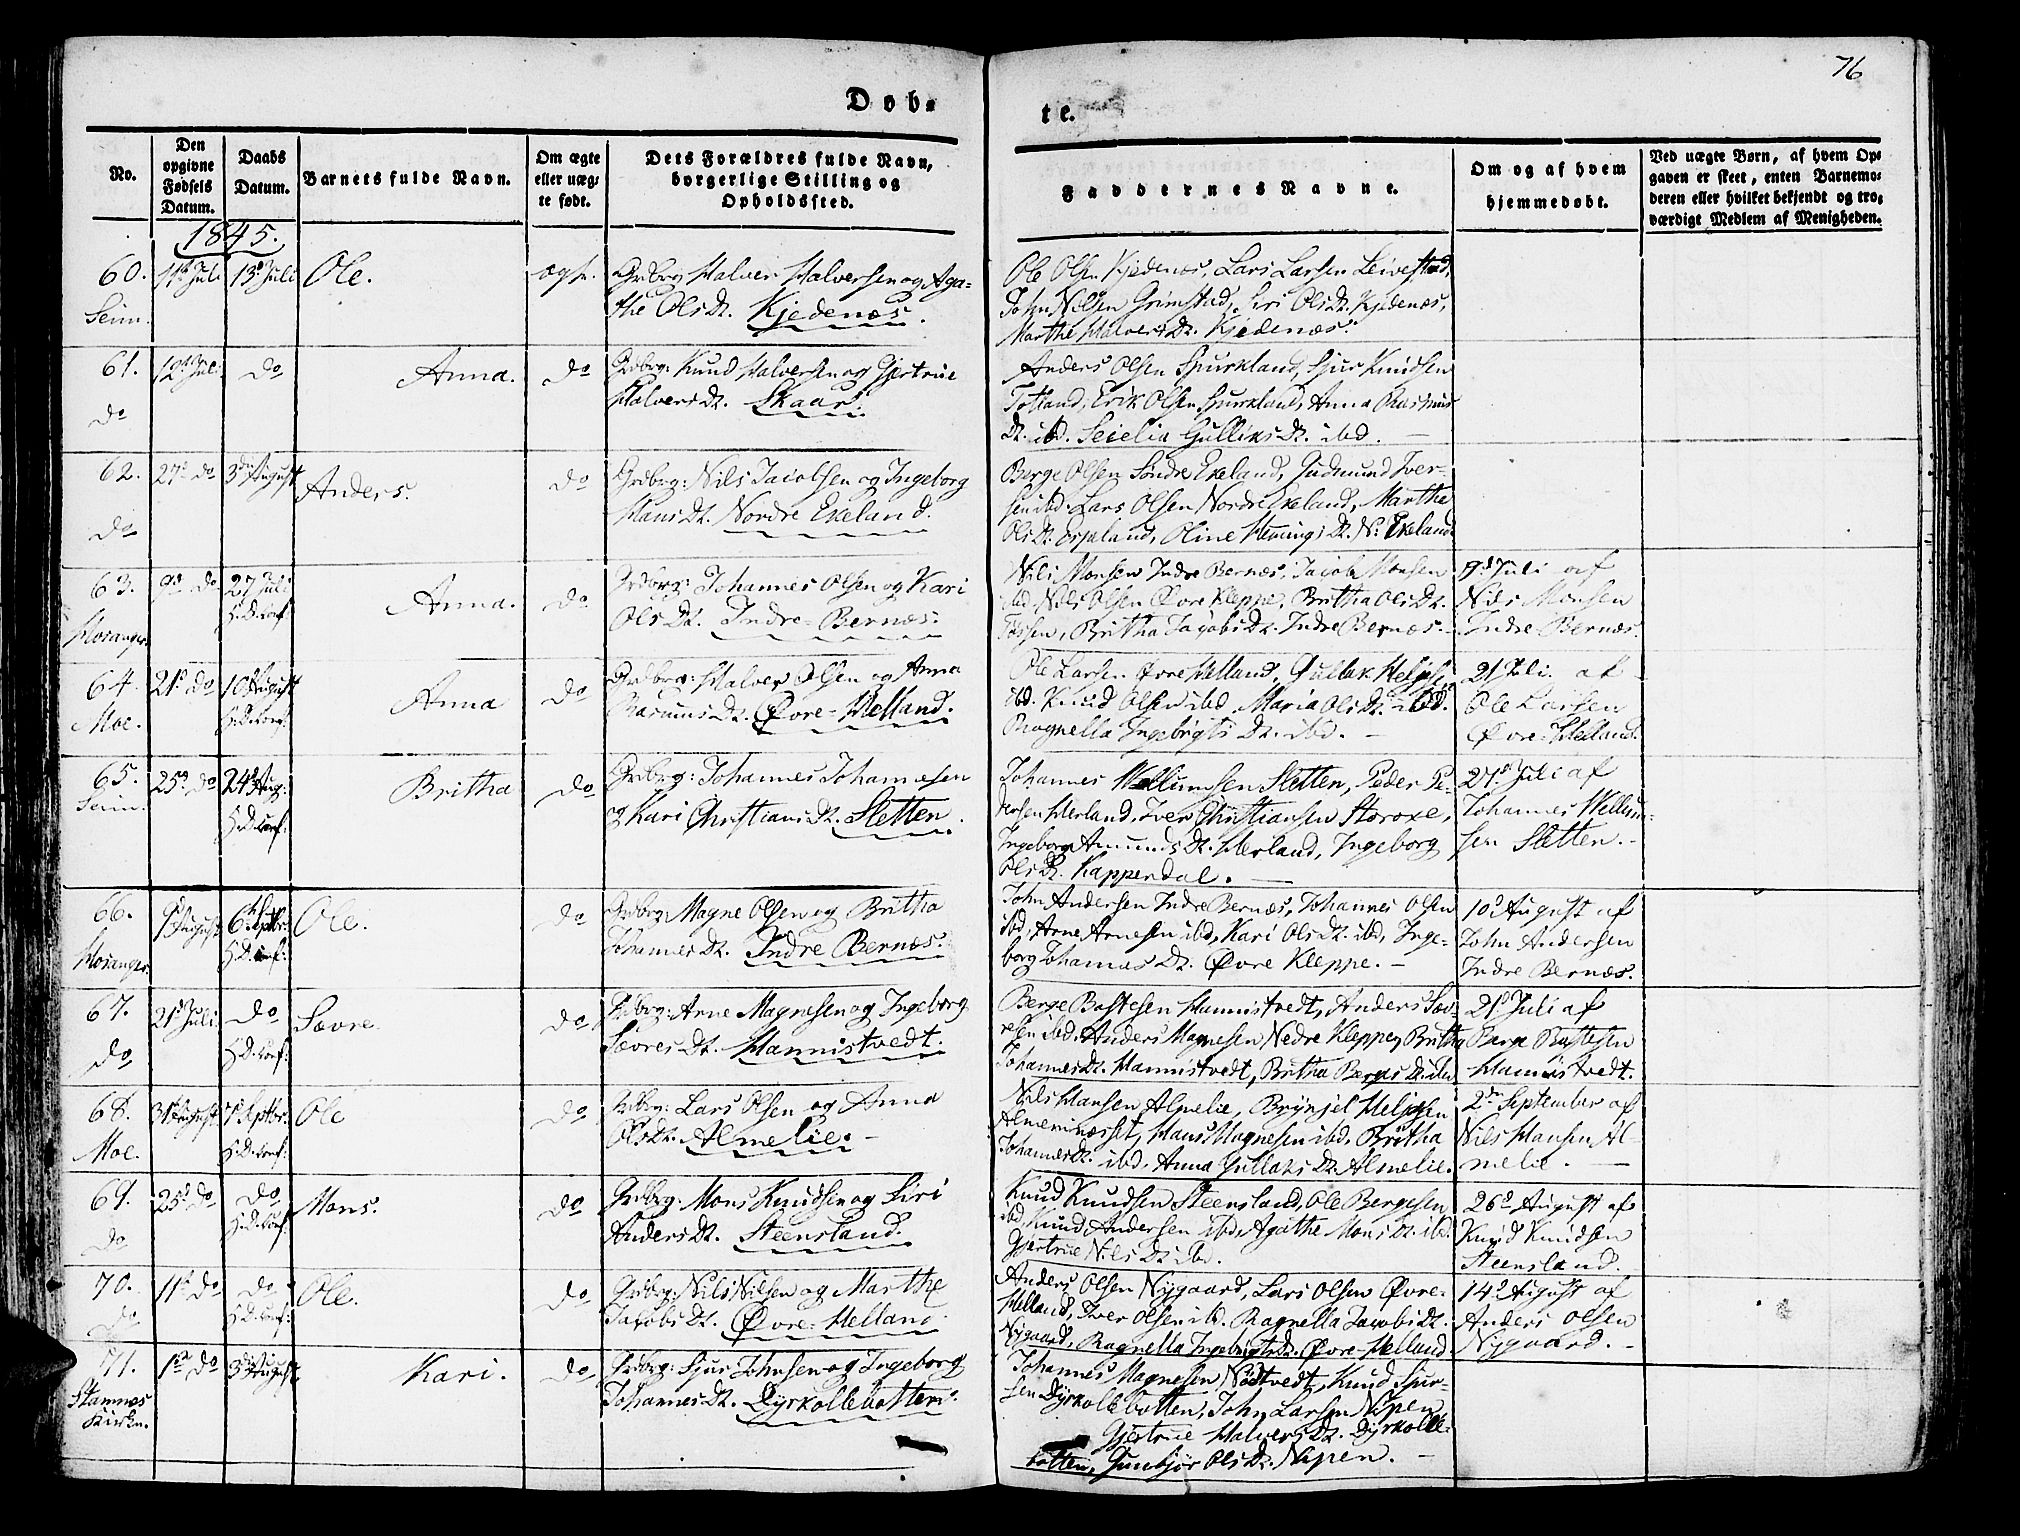 76
Døb-
te.
No.
Den opgivne Fødsels Datum.
Daabs Datum.
Barnets fulde Navn.
Om ægte eller uæg- te født.
Dets Forældres fulde Navn, borgerlige Stilling og Opholdssted.
Faddernes Navne.
Om og af hvem hjemmedøbt.
Ved uægte Børn, af hvem Op- gaven er skeet, enten Barnemo- deren eller hvilket bekjendt og tro- værdigt Medlem af Menigheden.
1845.
60. 11te Juli 13de Juli Ole. ægte. Grdbrg Halver Halversen og Aga-
Seim. the Olsdt. Kjedenæs.
Ole Olsen Kjedenæs, Lars Larsen Leivestad,
John Nilsen Grimstad, Siri Olsdt. Kjedenæs,
Marthe Halversdt. Kjedenæs.
61. 12te Juli do Anna. do Grdbrg: Knud Halversen og Gjertrue
do Halversdt. Skaar.
Anders Olsen Spurkland, Sjur Knudsen
Totland, Erik Olsen Spurkland, Anna Rasmus
dt. ibd. Seielia Gulliksdt. ibd.
62. 27de do 3die August Anders. do Grdbrg: Nils Jacobsen og Ingeborg
do Hansdt. Nordre Ekeland.
Berge Olsen Søndre Ekeland, Gudmund Iver-
sen ibd. Lars Olsen Nordre Ekeland, Marthe
Olsdt. Espeland, Oline Hemmingsdt. N: Ekeland
63. 9de do 27 Juli Anna. do Grdbrg: Johannes Olsen og Kari
Mosanger H.D. conf: Olsdt. Indre Bernæs.
Nils Monsen Indre Bernæs, Jacob Monsen
ibd, Nils Olsen Øvre Kleppe, Britha Olsdt.
Fossen, Britha Jacobsdt. Indre Bernæs.
9de Juli af
Nils Monsen
Indre Bernæs.
64. 21de do 10 August Anna do Grdbrg: Halver Olsen og Anna
Moe. H.D. conf: Rasmusdt. Øvre Helland.
Ole Larsen Øvre Helland, Gullak Helgesen
ibd. Knud Olsen ibd, Maria Olsdt. ibd.
Ragnella Ingebrigtsdt. ibd.
21 Juli af
Ole Larsen
Øvre Helland.
65. 25de do 24de Aug: Britha do Grdbrg: Johannes Johannesen
Seim. H.D. conf: og Kari Christiansdt. Sletten.
Johannes Wellumsen Sletten, Peder Pe-
dersen Herland, Iver Christiansen Storoxe,
Ingeborg Amundsdt. Herland, Ingeborg
Olsdt. Kappendal.
27de Juli af
Johannes Wellum-
sen Sletten.
66. 9de August 6te Septbr: Ole. do Grdbrg: Magne Olsen og Britha
Mosanger. H.D. conf: Johannesdt. Indre Bernæs.
John Andersen Indre Bernæs, Johannes Olsen
ibd, Arne Arnesen ibd, Kari Olsdt. ibd, Inge-
borg Johannesdt. Øvre Kleppe.
10de August af
John Andersen
Indre Bernæs.
67. 21de Juli do Sævre. do Grdbrg: Arne Magnesen og Ingeborg
do H.D. conf: Sævresdt. Hannistvedt.
Berge Bostesen Hannistvedt, Anders Sæv-
resen ibd. Anders Magnesen Nedre Kleppe, Britha
Johannesdt. Hannistvedt, Britha Bergesdt. ibd.
21de Juli af
Berge Bostesen
Hannistvedt.
68. 31te August 7de Septbr. Ole do Grdbrg: Lars Olsen og Anna
Moe. H.D. conf: Olsdt. Almelie.
Nils Hansen Almelie, Brynjel Helgesen
Almennesset, Hans Magnesen ibd. Britha
Johannesdt. ibd. Anna Gullaksdt. Almelie.
2den September af
Nils Hansen Al-
melie.
69. 25de do do Mons. do Grdbrg: Mons Knudsen og Siri
do H.D. conf: Andersdt. Steensland.
Knud Knudsen Steensland, Ole Bergesen
ibd, Knud Andersen ibd, Agathe Monsdt. ibd.
Gjertrue Nilsdt. ibd.
26de August af
Knud Knudsen
Steensland.
70. 11te do do Ole. do Grdbrg: Nils Nilsen og Marthe
do H.D. conf: Jacobsdt. Øvre Helland.
Anders Olsen Nygaard, Lars Olsen Øvre
Helland, Iver Olsen ibd. Ragnella Jacobsdt.
Nygaard, Ragnella Ingebrigtsdt. Øvre Helland.
14de August af
Anders Olsen
Nygaard.
71. 1ste do 3die August Kari. do, Grdbrg: Sjur Johnsen og Ingeborg
Stamnes Kirke. Johannesdt. Dyrkollebotten.
Johannes Magnesen Nødtvedt, Knud Sjur-
sen Dyrkollebotten, John Larsen Nipen
Gjertrue Halversdt. Dyrkolle-
botten, Gunbjør Olsdt. Nipen.